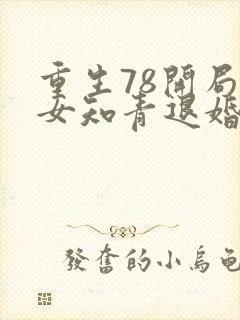 重生78開局
女知青退婚
發奮的小烏龜